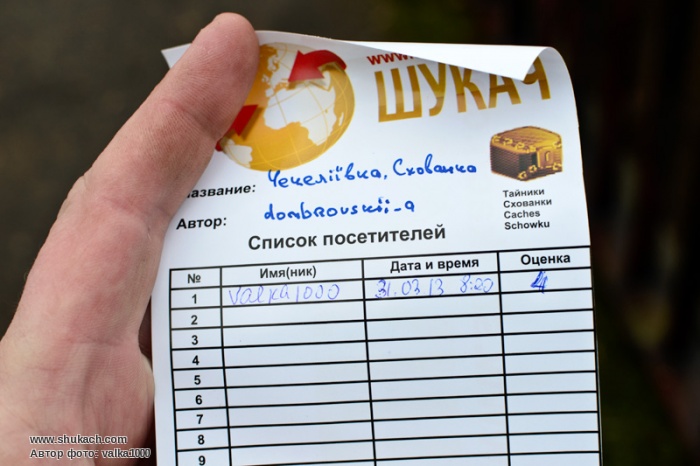 www.
ШУКАЧ
Название: Чечеліївка, Схованка
Автор: dombrovskii_a
Тайники
Схованки
Caches
Schowku
Список посетителей
№ Имя(ник) Дата и время Оценка
1 valka1000 31.03 13 8:20 4
2
3
4
5
6
7
8
9
www.shukach.com
Автор фото: valka1000